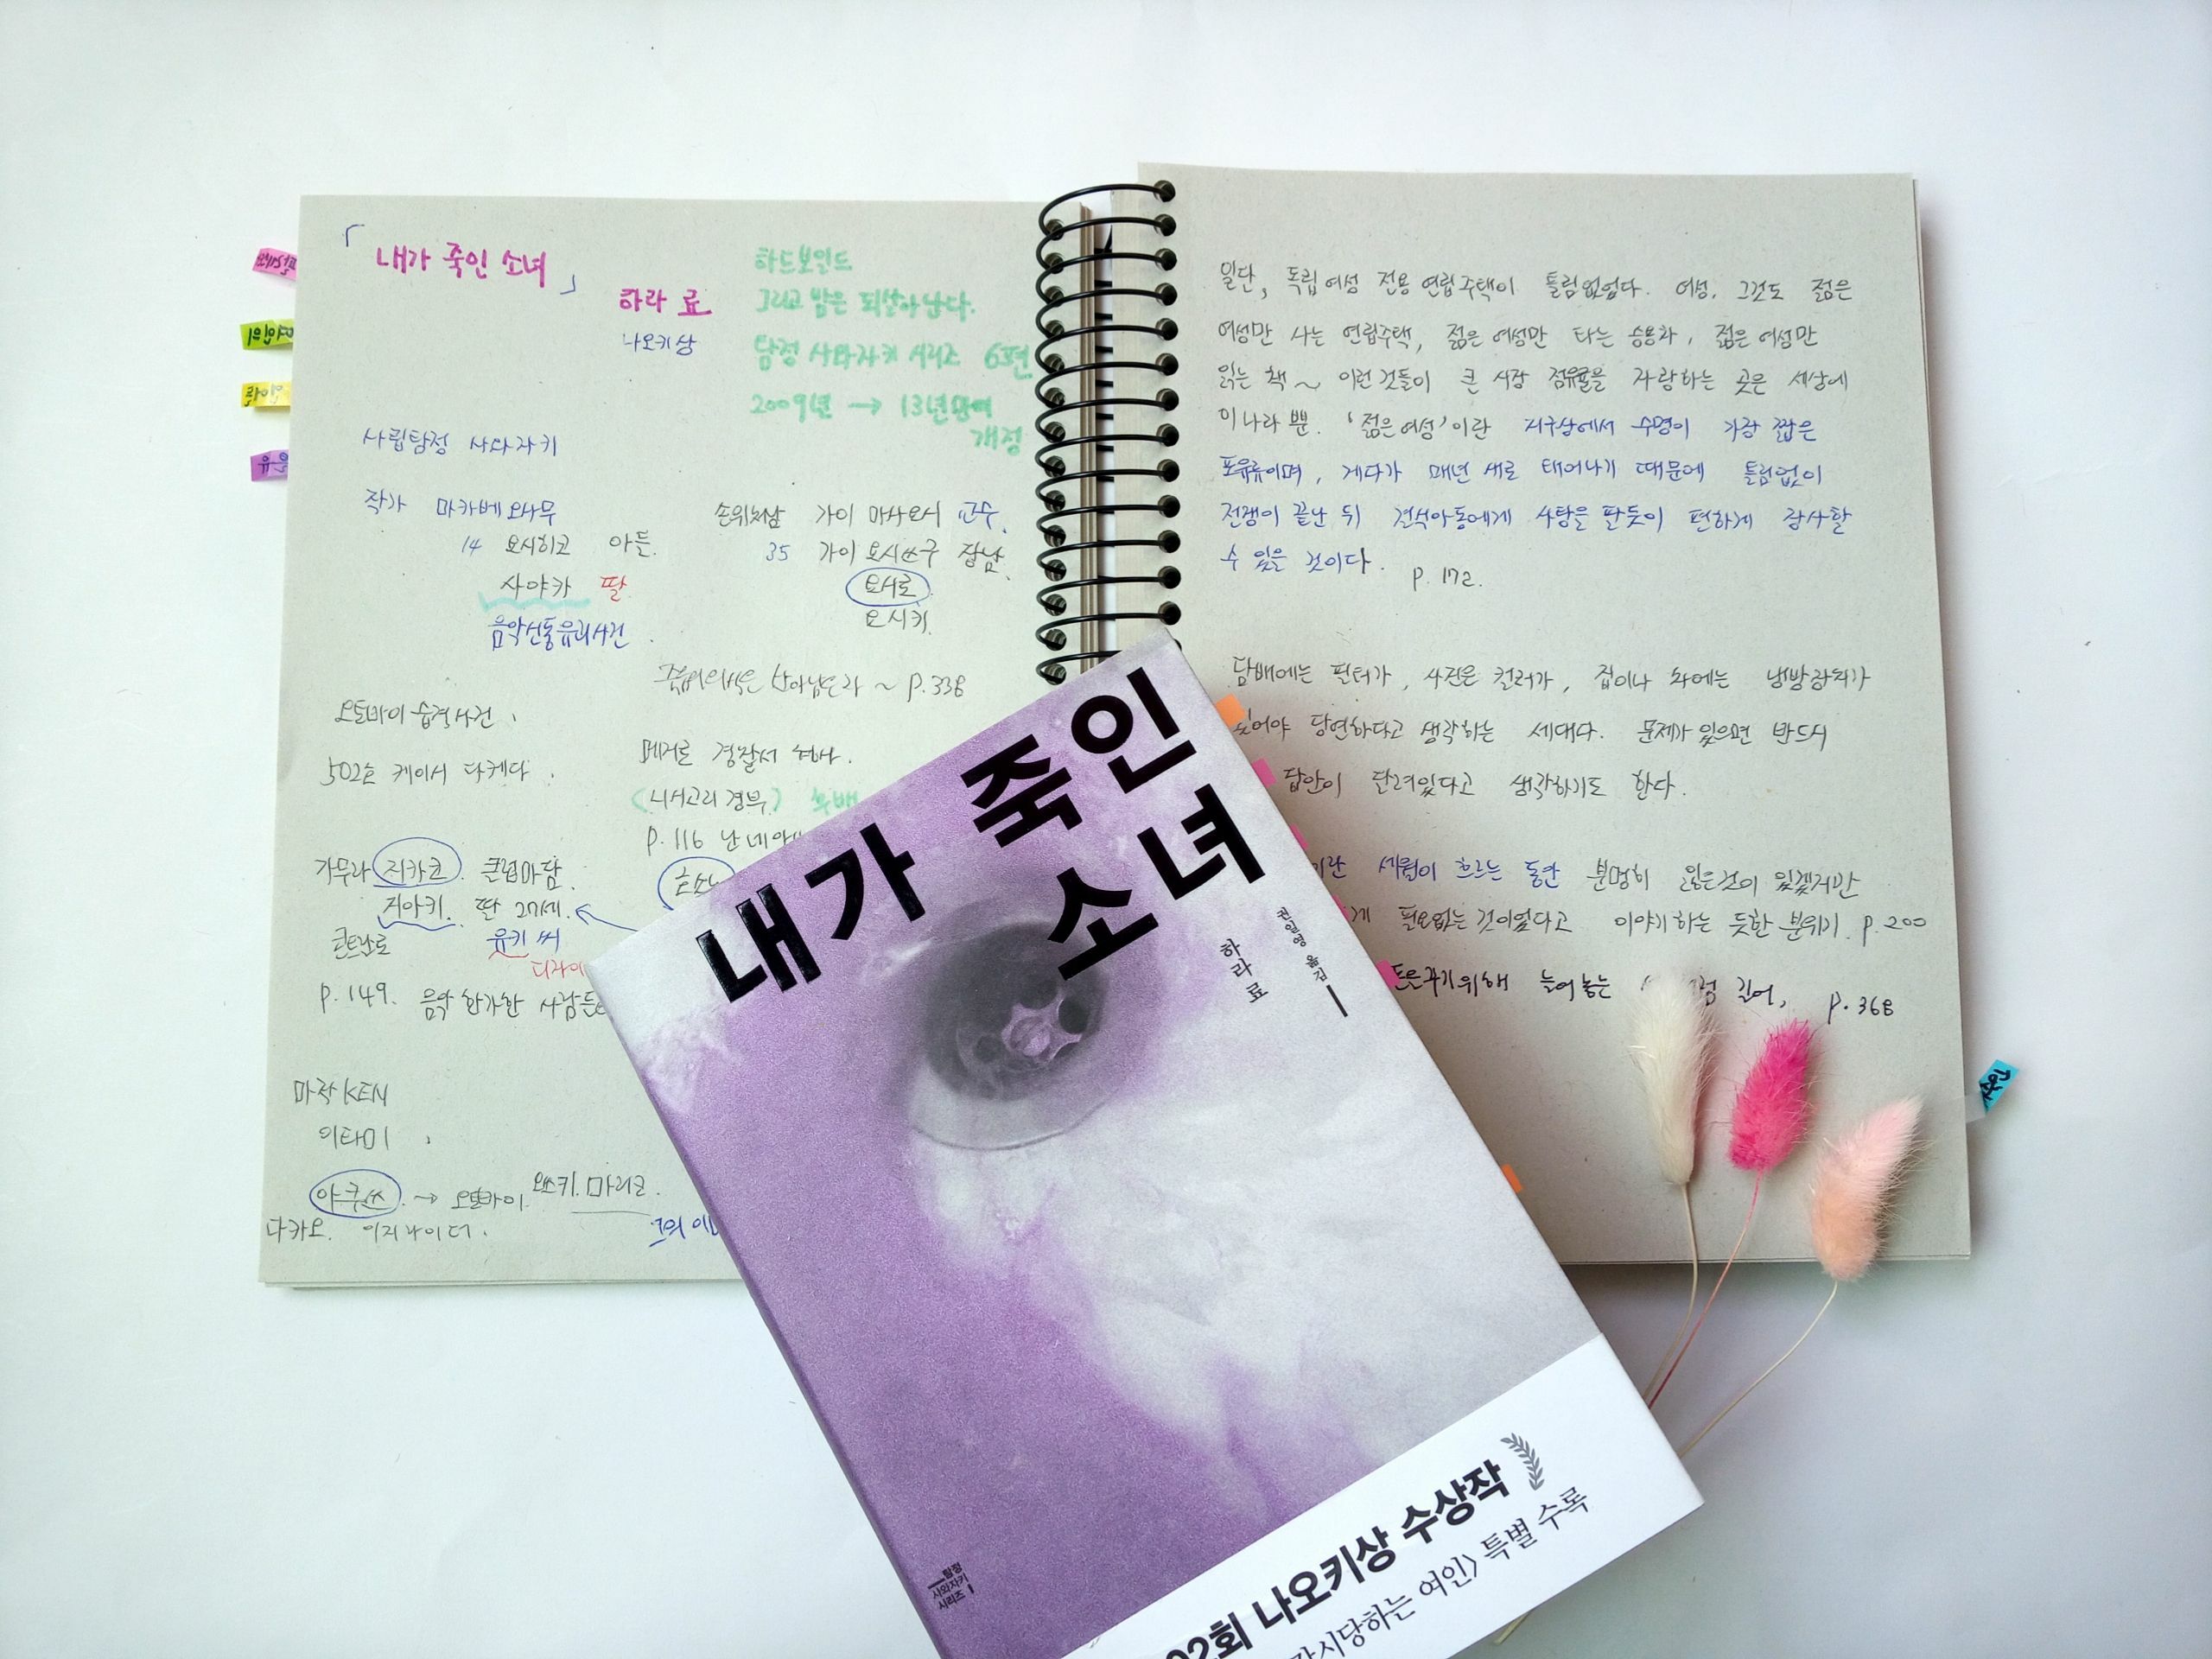 「내가 죽인 소녀」
하라 료
나오키상
하드보일드
그리고 밤은 되살아난다.
탐정 사와자키 시리즈 6편
2009년 → 13년만에
개정
사립탐정 사와자키
작가 마카베 오사무
14 요시히코 아들.
사야카 딸.
음악신동유괴사건.
손위처남 가이 마사요시 교수.
35 가이 요시쓰구 장남.
요시로
요시키.
살아남는다 ~ p.338
오토바이 습격사건.
502호 케이시 다케다.
메지로 경찰서 형사.
(니시고리 경부)
p.116 난 네
가무라 지카코. 클럽마담.
지아키. 딴 27세.
유키 씨
p.149. 음악 한가한 사람들
마작 KEN
이타미.
야쿠쓰. → 오토바이. 오쓰키. 마리코.
다카오. 이지나이더.
그의
일단, 독립여성 전용 연립주택이 틀림없었다. 여성, 그것도 젊은
여성만 사는 연립주택, 젊은 여성만 타는 승용차, 젊은 여성만
읽는 책~ 이런 것들이 큰 시장 점유율을 자랑하는 곳은 세상에
이 나라 뿐. '젊은 여성'이란 지구상에서 수명이 가장 짧은
포유류이며, 게다가 매년 새로 태어나기 때문에 틀림없이
전쟁이 끝난 뒤 결식아동에게 사탕을 판듯이 편하게 장사할
수 있을 것이다. p.172.
담배에는 필터가, 사진은 컬러가, 집이나 차에는 냉방장치가
있어야 당연하다고 생각하는 세대다. 문제가 있으면 반드시
답안이 달려있다고 생각하기도 한다.
이란 세월이 흐르는 동안 분명히 잃은것이 있겠지만
게 필요없는 것이었다고 이야기하는 듯한 분위기. p.200
위해 늘어놓는 길어, p.368
내가 죽인
소녀
하라 료
권일영 옮김
탐정
사와자키
시리즈
02회 나오키상 수상작
감시당하는 여인〉 특별 수록